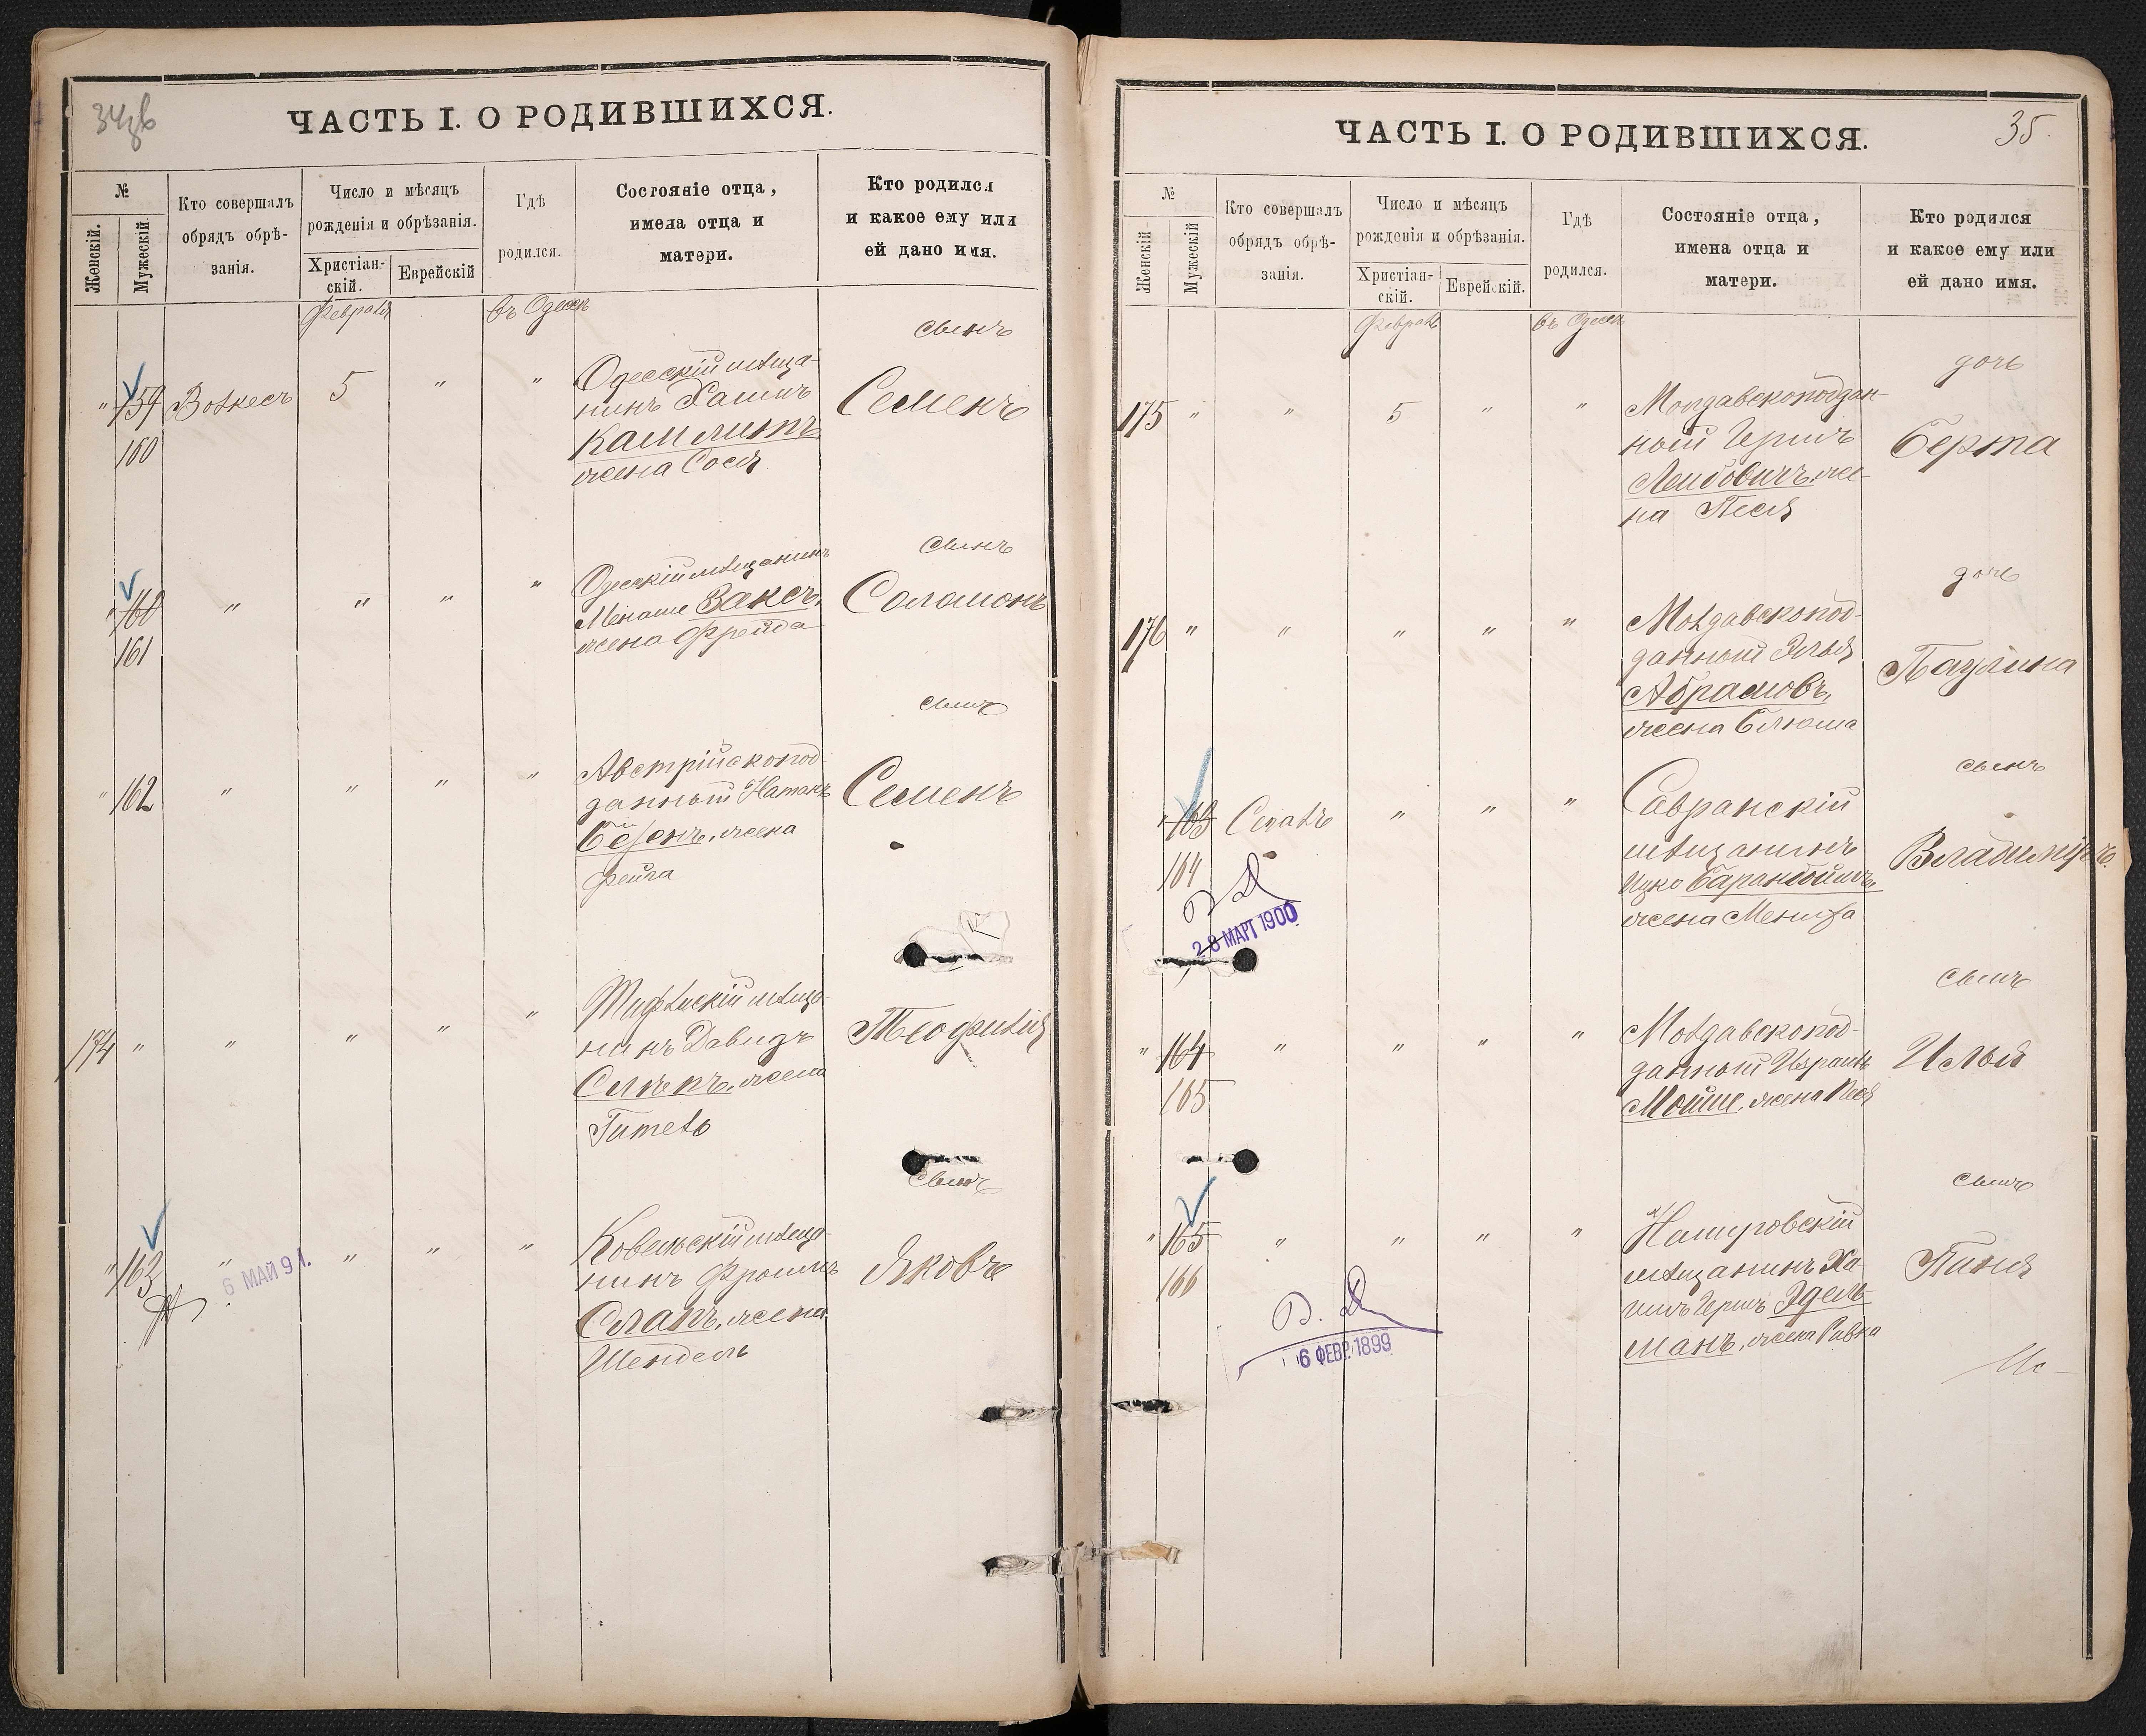 34об
ЧАСТЬ I. О РОДИВШИХСЯ.
№
Женскій.
Мужескій.
Кто совершалъ
обрядъ обрѣ-
занія.
Число и мѣсяцъ
рожденія и обрѣзанія.
Христіан-
скій.
Еврейскій
Гдѣ
родился.
Состояніе отца,
имена отца и
матери.
Кто родился
и какое ему или
ей дано имя.
Февраля
въ Одессѣ
сынъ
" 159 5 " " Одесскій мѣща-
нинъ Хаимъ Семенъ
160
жена Сося
сынъ
" 160 " " " " Одесскій мѣщанинъ
Менаше Заксъ, Соломонъ
161 жена Фрейда
сынъ
" 162 " " " " Австрійскопод-
данный Натанъ Семенъ
жена
Фейга
174 " " " " " мѣща-
нинъ Давидъ Теофилія
жена
Гитель
сынъ
" 163 " 6 МАЙ 91. " " " Ковельскій мѣща-
нинъ Фроимъ Яковъ
Слапъ, жена
Шендель
35.
ЧАСТЬ I. О РОДИВШИХСЯ.
№
Женскій
Мужескій
Кто совершалъ
обрядъ обрѣ-
занія.
Число и мѣсяцъ
рожденія и обрѣзанія.
Христіан-
скій.
Еврейскій.
Гдѣ
родился.
Состояніе отца,
имена отца и
матери.
Кто родился
и какое ему или
ей дано имя.
Февраль
въ Одессѣ
дочь
175 " " 5 " " Молдавскоподан-
ный Гершъ Берта
Лейбовичъ, же-
на Песя
дочь
176 " " " " " Молдавскопод-
данный Элья Паулина
Абрамовъ,
жена Блюма
сынъ
" 163 " " " Савранскій
мѣщанинъ Владиміръ.
164 Ицко
жена
28 МАРТ 1900
сынъ
" 164 " " " " Молдавскопод-
данный Израиль Илья
165 Мойше, жена Песя
сынъ
" 165 " " " "
мѣщанинъ Ха- Пиня
166 имъ Гершъ Эдель-
манъ, жена Ривка
В. Д.
6 ФЕВР. 1899